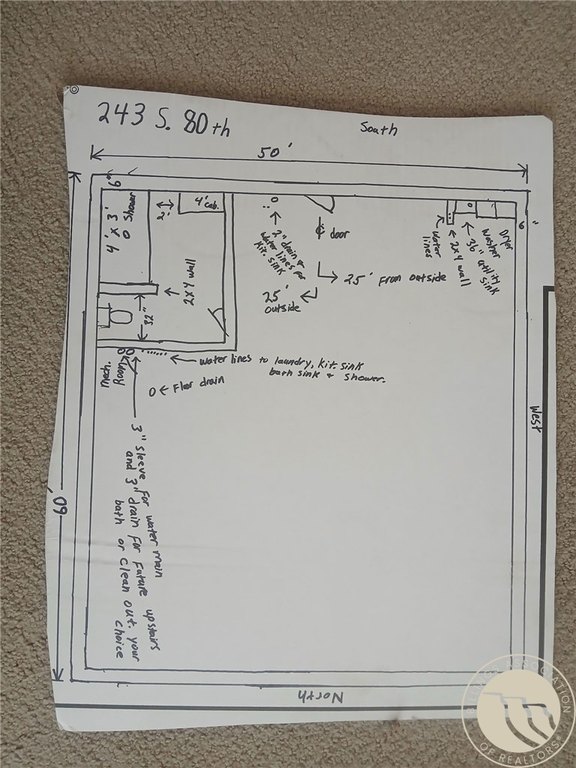 243 S. 80th
South
50'
6"
4' X 3'
0 Shower
2'
4' Cab.
2x4 wall
32"
2" drain &
water lines for
Kit. Sink
door
25' From outside
25'
outside
Water
lines
2x4 wall
36" utility
sink
Washer
Dryer
6"
West
Water lines to laundry, kit. sink
bath sink & shower.
Floor drain
Mech.
Room
3" sleeve for water main
and 3" drain for future upstairs
bath or clean out. your
choice
60'
North
ASSOCIATION
OF REALTORS